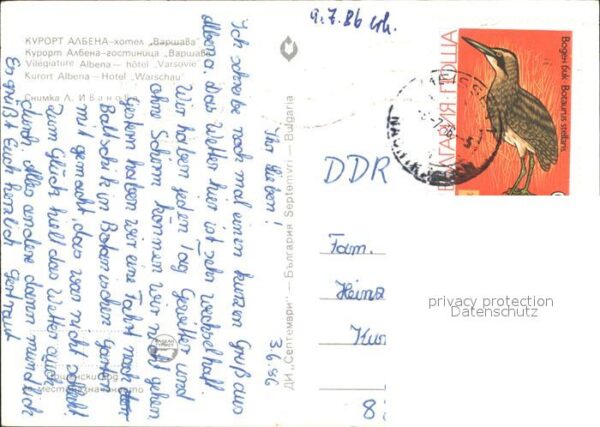 КУРОРТ АЛБЕНА-хотел „Варшава"
Курорт Албена-гостиница „Варшава"
Villegiature Albena — hôtel „Varsovie"
Kurort Albena — Hotel „Warschau"
Снимка Л. Иванов
9.7.86 erh.
3.6.86
Ihr Lieben!
Ich schreibe noch mal einen kurzen Gruß aus
Albena. Das Wetter hier ist sehr wechselhaft.
Wir haben jeden Tag Gewitter und
ohne Schirm können wir nicht gehen.
Gestern haben wir eine Fahrt nach
Baltschik in Botanischen Garten
mit gemacht, das war nicht schlecht.
Zum Glück hielt das Wetter auch
durch. Alles andere dann mündlich
Es grüßt Euch herzlich Gertraut
ДИ „Септември" — България Septemvri — Bulgaria
БЪЛГАРИЯ · ПОЩА
Воден бик Botaurus stellaris
DDR
Fam.
Heinz
Kur
8
privacy protection
Datenschutz